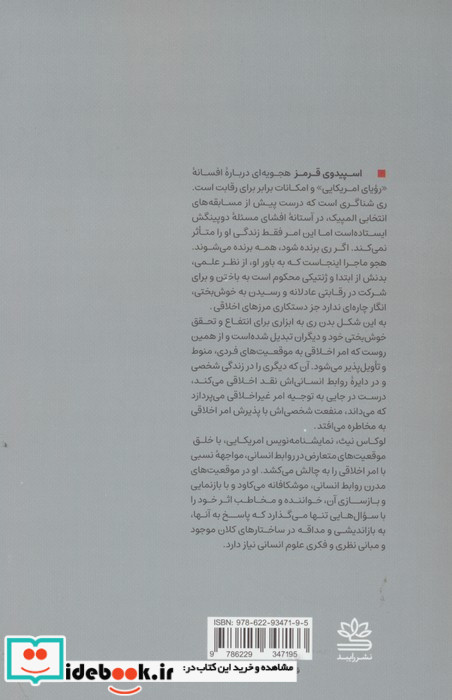 اسپیدوی قرمز هجویه‌ای دربارۀ افسانۀ
«رؤیای امریکایی» و امکانات برابر برای رقابت است.
ری شناگری است که درست پیش از مسابقه‌های
انتخابی المپیک، در آستانۀ افشای مسئلۀ دوپینگش
ایستاده‌است اما این امر فقط زندگی او را متأثر
نمی‌کند. اگر ری برنده شود، همه برنده می‌شوند.
هجو ماجرا اینجاست که به باور او، از نظر علمی،
بدنش از ابتدا و ژنتیکی محکوم است به باختن و برای
شرکت در رقابتی عادلانه و رسیدن به خوش‌بختی،
انگار چاره‌ای ندارد جز دستکاری مرزهای اخلاقی.
به این شکل بدن ری به ابزاری برای انتفاع و تحقق
خوش‌بختی خود و دیگران تبدیل شده‌است و از همین
روست که امر اخلاقی به موقعیت‌های فردی، منوط
و تأویل‌پذیر می‌شود. آن که دیگری را در زندگی شخصی
و در دایرۀ روابط انسانی‌اش نقد اخلاقی می‌کند،
درست در جایی به توجیه امر غیراخلاقی می‌پردازد
که می‌داند، منفعت شخصی‌اش با پذیرش امر اخلاقی
به مخاطره می‌افتد.
لوکاس نیث، نمایشنامه‌نویس امریکایی، با خلق
موقعیت‌های متعارض در روابط انسانی، مواجهۀ نسبی
با امر اخلاقی را به چالش می‌کشد. او در موقعیت‌های
مدرن روابط انسانی، موشکافانه می‌کاود و با بازنمایی
و بازسازی آن، خواننده و مخاطب اثر خود را
با سؤال‌هایی تنها می‌گذارد که پاسخ به آنها،
به بازاندیشی و مداقه در ساختارهای کلان موجود
و مبانی نظری و فکری علوم انسانی نیاز دارد.
ISBN: 978-622-93471-9-5
9 786229 347195
نشر رایبد
مشاهده و خرید این کتاب در:
idebook.ir